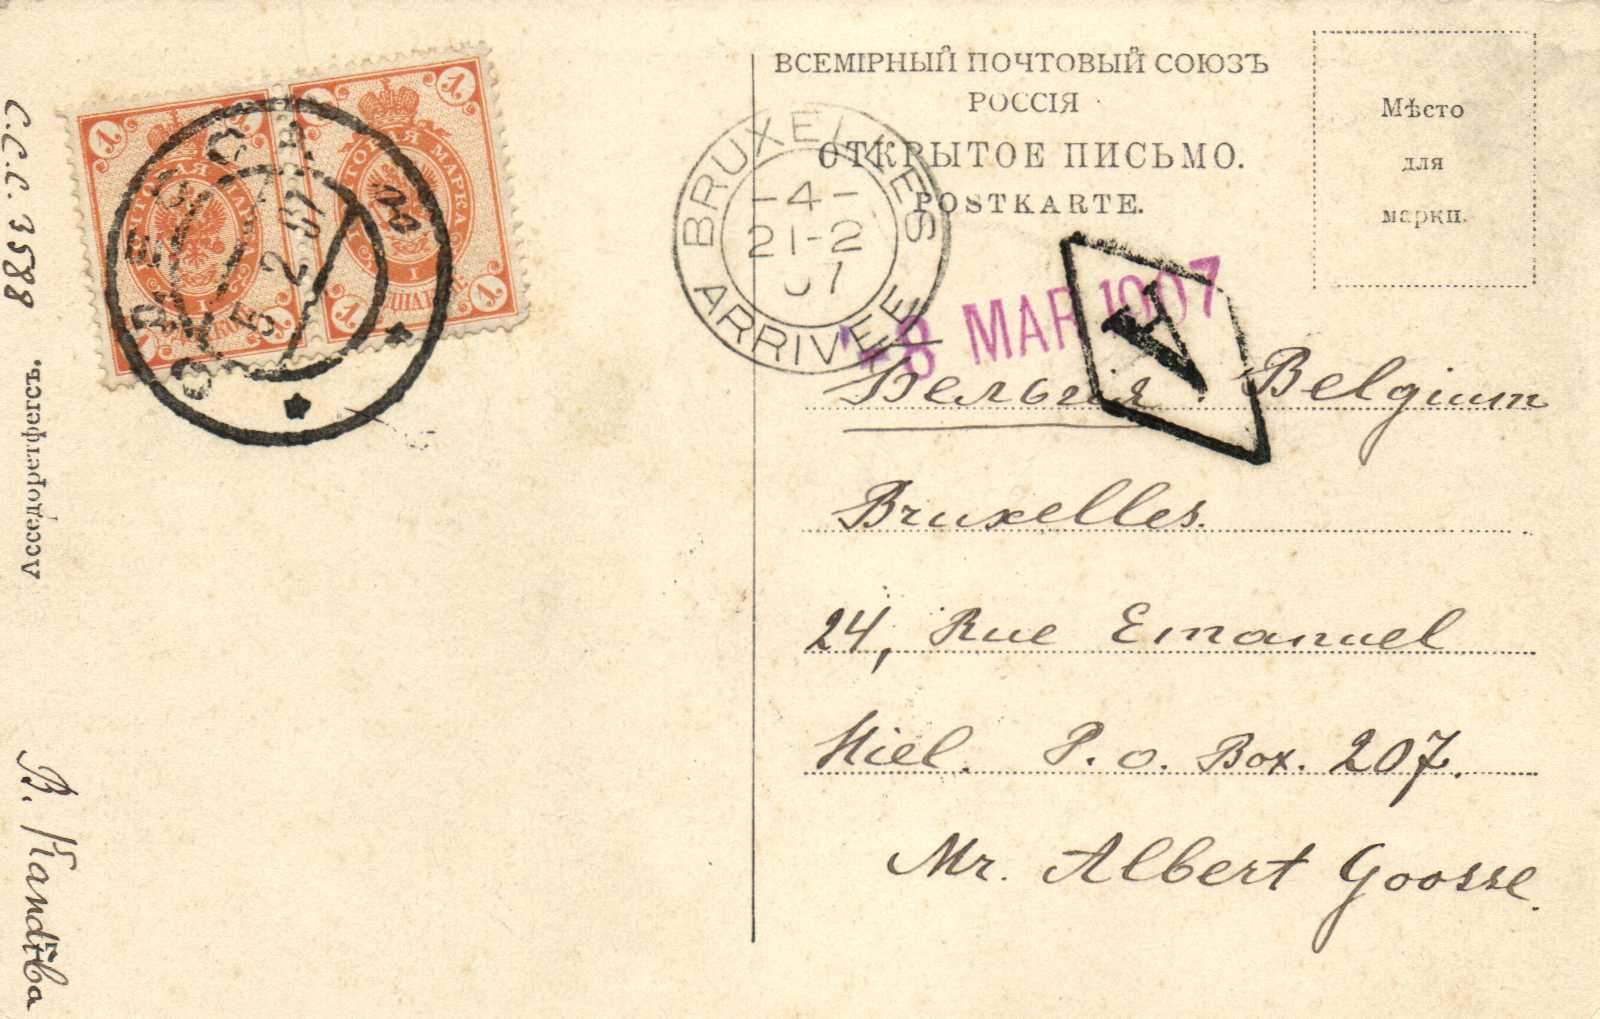 ВСЕМІРНЫЙ ПОЧТОВЫЙ СОЮЗЪ
РОССІЯ
ОТКРЫТОЕ ПИСЬМО.
POSTKARTE.
Мѣсто
для
марки.
BRUXELLES
-4-
21-2
07
ARRIVEE
ОДЕССА
5 2 07
1
1
1
1
ПОЧТОВАЯ МАРКА
8 MAR 1907
A
Бельгія Belgium
Bruxelles.
24, Rue Emanuel
Hiel. P.o. Box. 207.
Mr. Albert Goosse.
C.C.C. 3588
Асседоретфегсъ.
В. Кандѣба